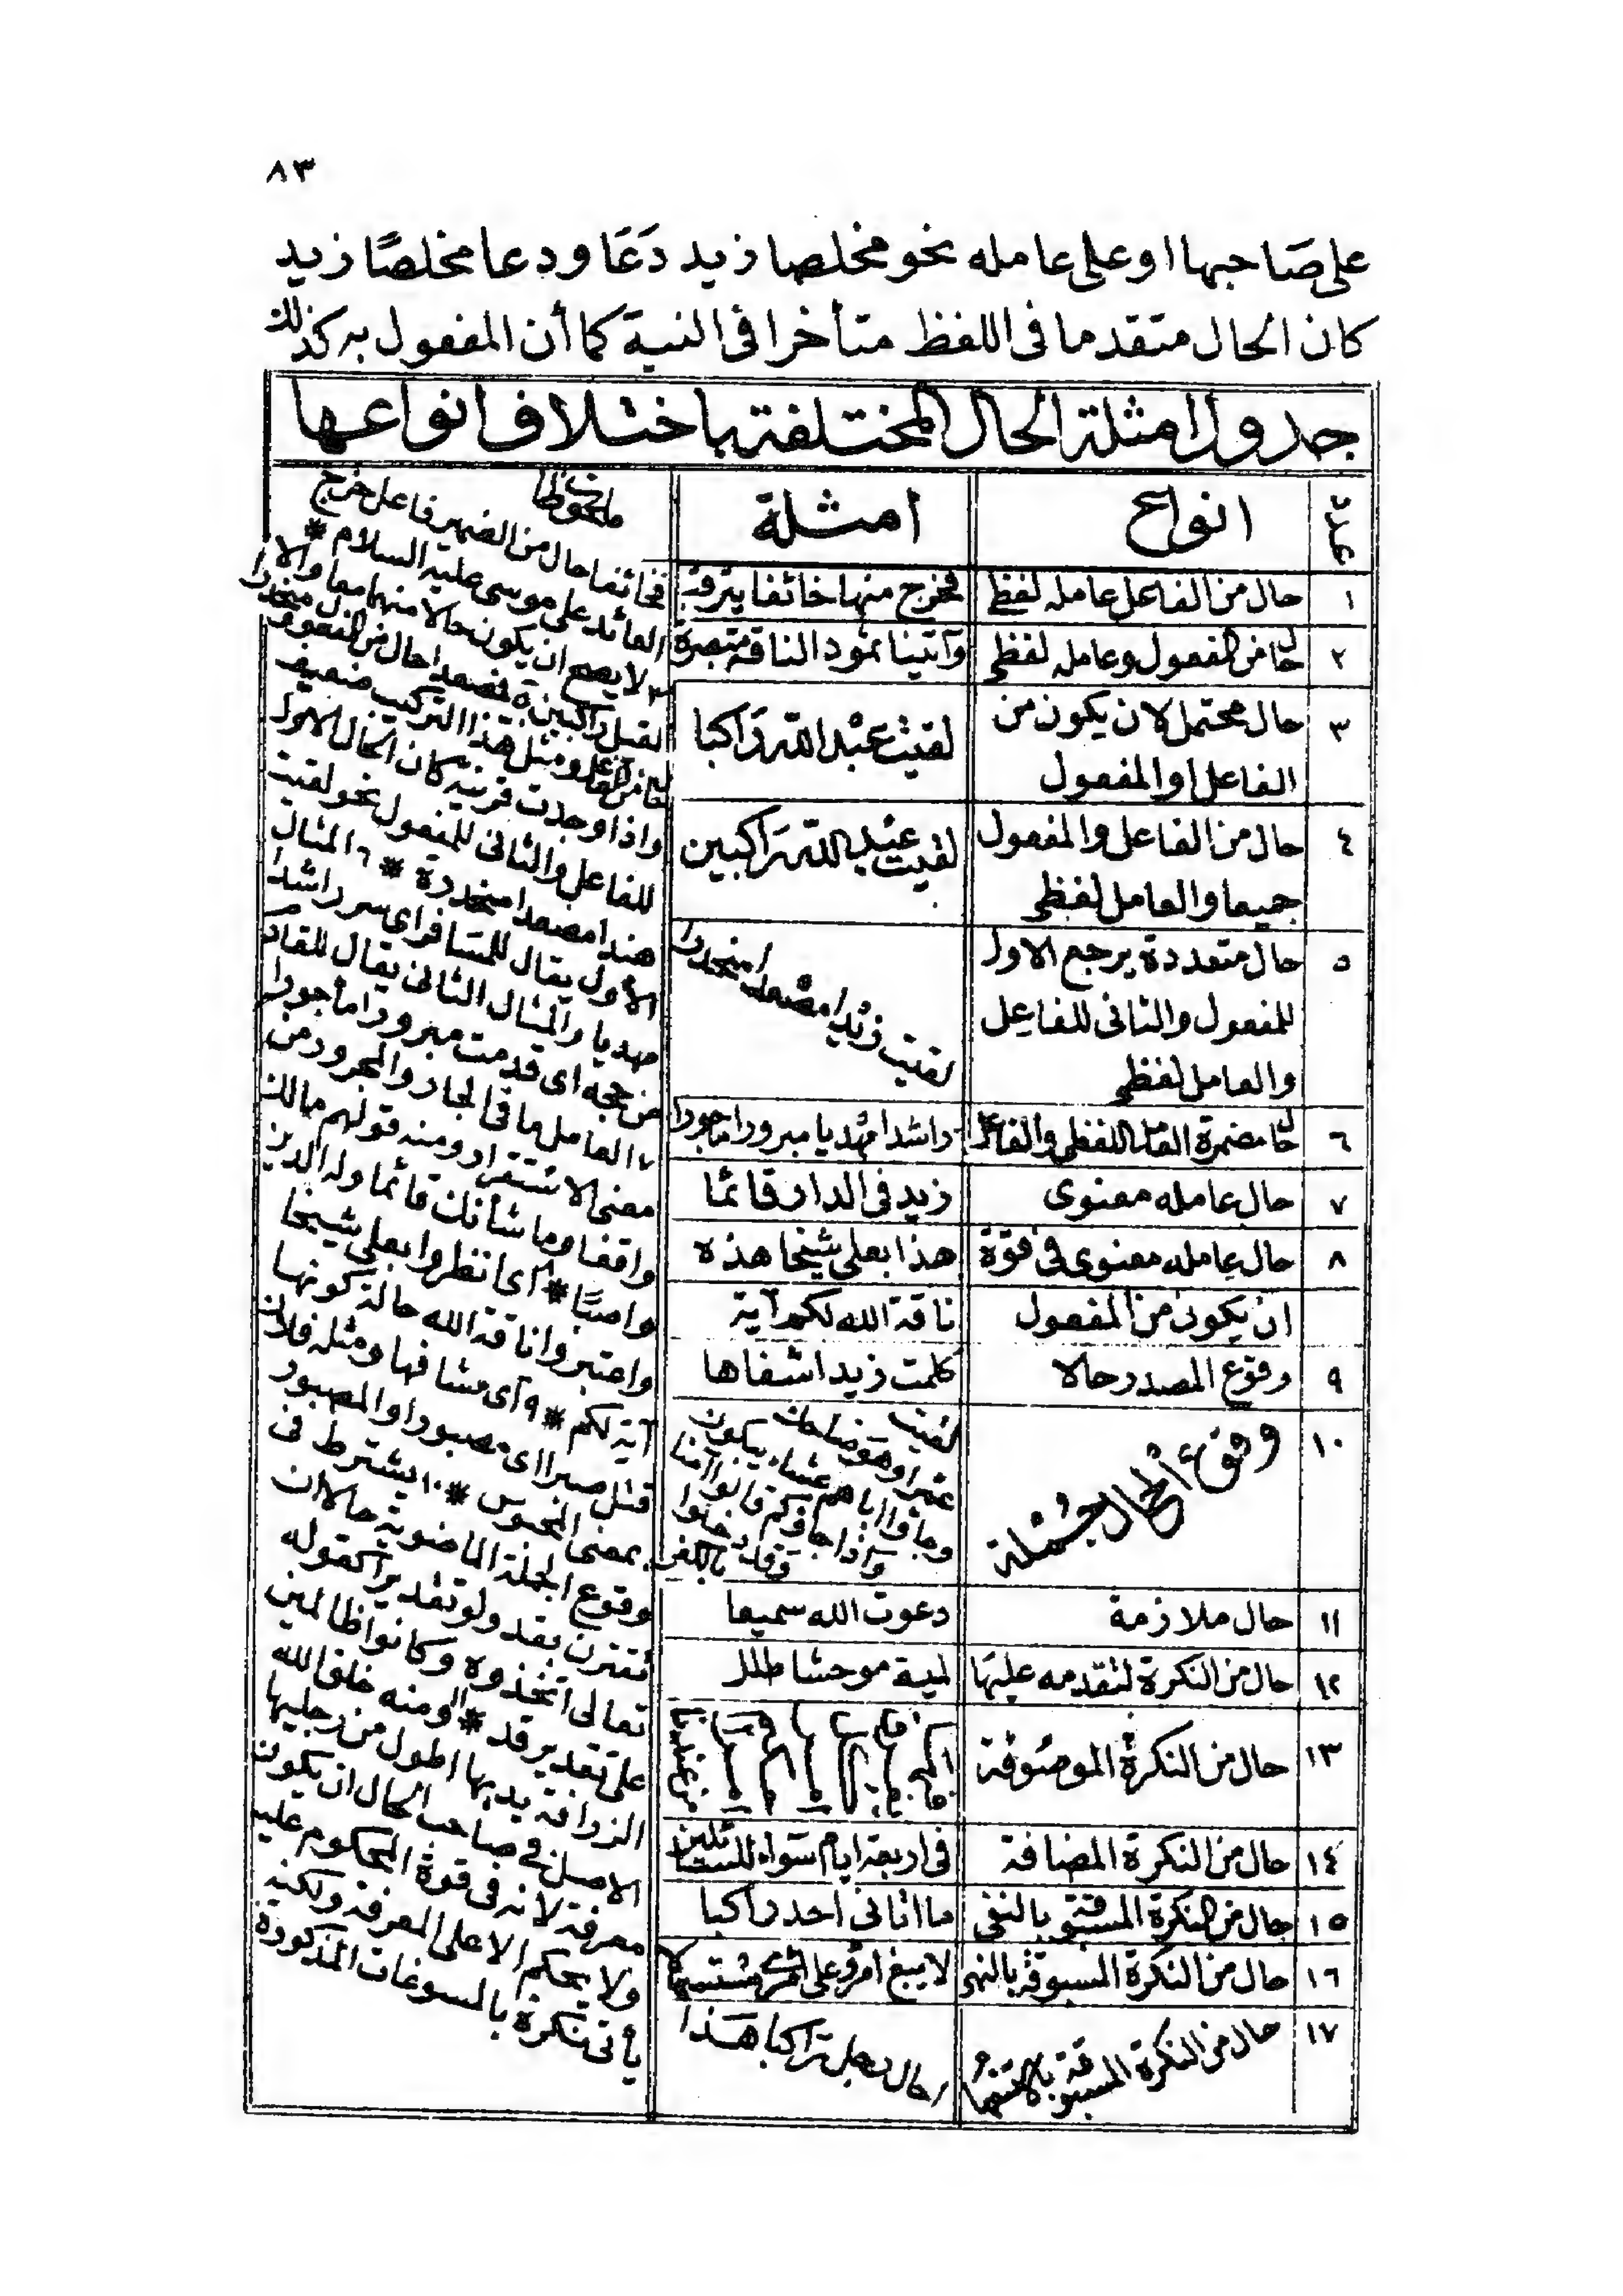 ٨٣
على صَاحبها او على عامله نحو مخلصا زيد دَعَا ودعا مخلصًا زيد
كان الحال متقدما فى اللفظ متأخرا فى النية كما أن المفعول به كذلك
جدول امثلة الحال المختلفة باختلاف انواعها
عدد
انواع
أمثلة
ملحوظات
١
حال من الفاعل عامله لفظى
فخرج منها خائفا يترقب
٢
حال من المفعول وعامله لفظى
وآتينا ثمود الناقة مبصرة
٣
حال محتمل لان يكون من
الفاعل او المفعول
لقيت عبد الله راكبا
٤
حال من الفاعل والمفعول
جميعا والعامل لفظى
لقيت عبد الله راكبين
٥
حال متعددة يرجع الاول
للمفعول والثانى للفاعل
والعامل لفظى
لقيت زيدا مصعدا منحدرا
٦
حال مضمرة العامل اللفظى والفاعل
راشدا مهديا مبرورا مأجورا
٧
حال عامله معنوى
زيد فى الدار قائما
٨
حال عامله معنوى فى قوة
ان يكون من المفعول
هذا بعلى شيخا هذه
ناقة الله لكم آية
٩
وقوع المصدر حالا
كلمت زيدا شفاها
١٠
وقوع الحال جملة
لقيت
عمرا وهو ضاحك
وجاؤا اباهم عشاء يبكون
واذا جاؤكم قالوا آمنا
وقد دخلوا بالكفر
١١
حال ملازمة
دعوت الله سميعا
١٢
حال من النكرة لتقدمه عليها
لمية موحشا طلل
١٣
حال من النكرة الموصوفة
١٤
حال من النكرة المضافة
فى اربعة ايام سواء للسائلين
١٥
حال من النكرة المسبوقة بالنفى
ما اتانى احد راكبا
١٦
حال من النكرة المسبوقة بالنهى
لا يبغ امرؤ على امرئ مستسهلا
١٧
حال من النكرة المسبوقة بالاستفهام
راكبا هذا
فخائفا حال من الضمير فاعل خرج
العائد على موسى عليه السلام *
٣ لا يصح ان يكون حالا منهما معا والا
لقيل راكبين ٥ فمصعدا حال من المفعول منحدرا
حال من الفاعل ومثل هذا التركيب ضعيف
واذا وجدت قرينة كان الحال الاول
للفاعل والثانى للمفعول نحو لقيت
هندا مصعدا منحدرة * ٦ المثال
الأول يقال للمسافر اى سر راشدا
مهديا والمثال الثانى يقال للقادم
من حجه اى قدمت مبرورا مأجورا
٧ العامل ما فى الجار والمجرور من
معنى الاستقرار ومنه قولهم مالك
واقفا وما شأنك قائما وله الدين
واصبًا * ٨ اى انظروا بعلى شيخا
واعتبروا ناقة الله حالة كونها
آية لكم * ٩ أى مشافها ومثله فلان
قتل صبرا اى مصبورا والمصبور
بمعنى المحبوس * ١٠ يشترط فى
وقوع الجملة الماضوية حالا ان
تقترن بقد ولو تقديرا كقوله
تعالى اتخذوه وكانوا ظالمين
على تقدير قد * ١١ ومنه خلق الله
الزرافة يديها اطول من رجليها
الاصل فى صاحب الحال ان يكون
معرفة لانه فى قوة المحكوم عليه
ولا يحكم الا على المعرفة ولكنه
يأتى نكرة بالمسوغات المذكورة